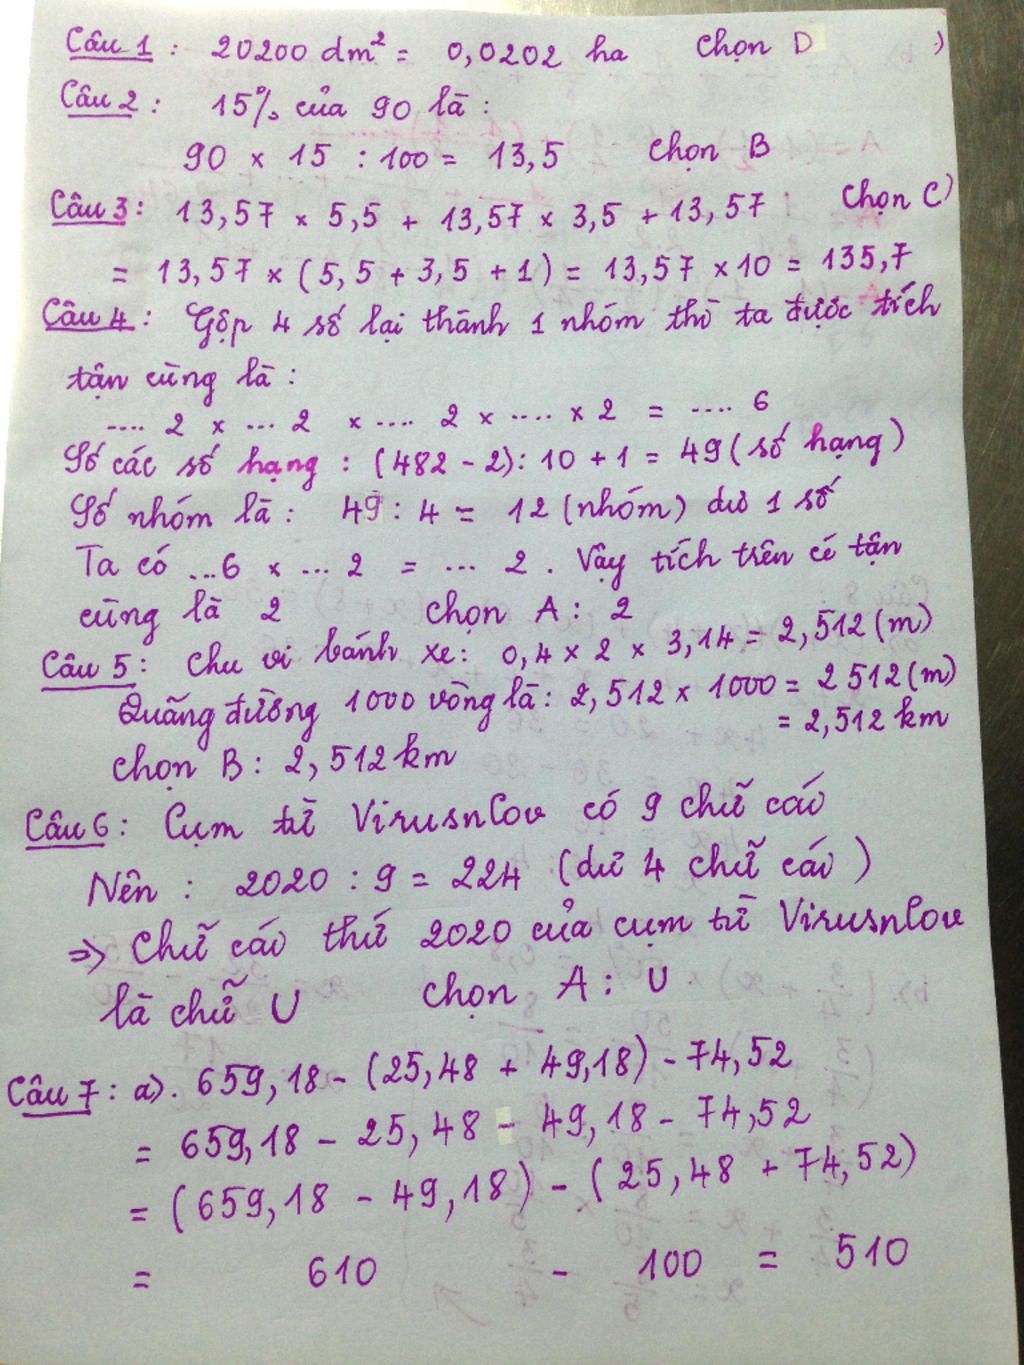 Câu 1 : 20200 dm² = 0,0202 ha chọn D
Câu 2 : 15% của 90 là :
90 × 15 : 100 = 13,5 chọn B
Câu 3 : 13,57 × 5,5 + 13,57 × 3,5 + 13,57 chọn C
= 13,57 × (5,5 + 3,5 + 1) = 13,57 × 10 = 135,7
Câu 4 : Gộp 4 số lại thành 1 nhóm thì ta được tích
tận cùng là :
.... 2 × ... 2 × .... 2 × .... × 2 = .... 6
Số các số hạng : (482 - 2) : 10 + 1 = 49 (số hạng)
Số nhóm là : 49 : 4 = 12 (nhóm) dư 1 số
Ta có ...6 × ... 2 = ... 2 . Vậy tích trên có tận
cùng là 2 chọn A : 2
Câu 5 : Chu vi bánh xe : 0,4 × 2 × 3,14 = 2,512 (m)
Quãng đường 1000 vòng là : 2,512 × 1000 = 2512 (m)
= 2,512 km
chọn B : 2,512 km
Câu 6 : Cụm từ VirusnCov có 9 chữ cái
Nên : 2020 : 9 = 224 (dư 4 chữ cái)
=> Chữ cái thứ 2020 của cụm từ VirusnCov
là chữ U chọn A : U
Câu 7 : a). 659,18 - (25,48 + 49,18) - 74,52
= 659,18 - 25,48 - 49,18 - 74,52
= (659,18 - 49,18) - (25,48 + 74,52)
= 610 - 100 = 510